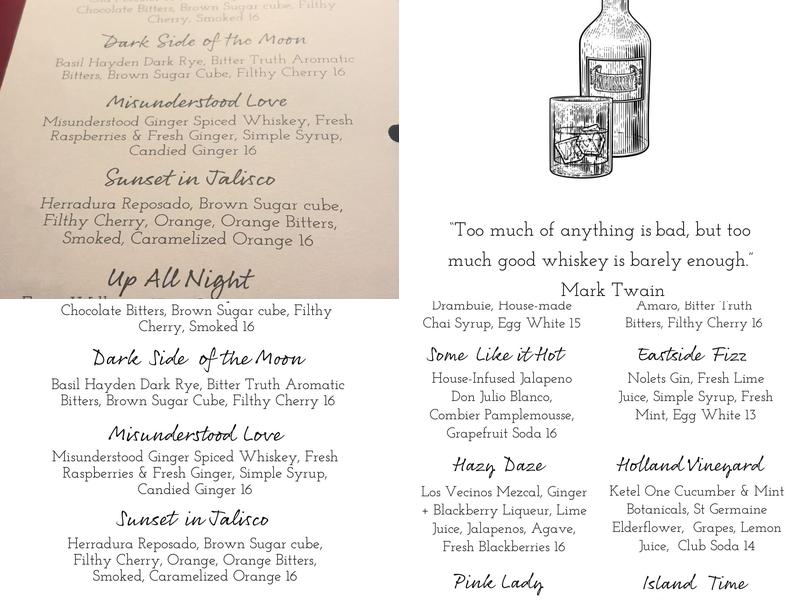 Chocolate Bitters, Brown Sugar cube, Filthy
Cherry, Smoked 16
Dark Side of the Moon
Basil Hayden Dark Rye, Bitter Truth Aromatic
Bitters, Brown Sugar Cube, Filthy Cherry 16
Misunderstood Love
Misunderstood Ginger Spiced Whiskey, Fresh
Raspberries & Fresh Ginger, Simple Syrup,
Candied Ginger 16
Sunset in Jalisco
Herradura Reposado, Brown Sugar cube,
Filthy Cherry, Orange, Orange Bitters,
Smoked, Caramelized Orange 16
Up All Night
WHISKEY
"Too much of anything is bad, but too
much good whiskey is barely enough."
Mark Twain
Chocolate Bitters, Brown Sugar cube, Filthy
Cherry, Smoked 16
Dark Side of the Moon
Basil Hayden Dark Rye, Bitter Truth Aromatic
Bitters, Brown Sugar Cube, Filthy Cherry 16
Misunderstood Love
Misunderstood Ginger Spiced Whiskey, Fresh
Raspberries & Fresh Ginger, Simple Syrup,
Candied Ginger 16
Sunset in Jalisco
Herradura Reposado, Brown Sugar cube,
Filthy Cherry, Orange, Orange Bitters,
Smoked, Caramelized Orange 16
Drambuie, House-made
Chai Syrup, Egg White 15
Some Like it Hot
House-Infused Jalapeno
Don Julio Blanco,
Combier Pamplemousse,
Grapefruit Soda 16
Hazy Daze
Los Vecinos Mezcal, Ginger
+ Blackberry Liqueur, Lime
Juice, Jalapenos, Agave,
Fresh Blackberries 16
Pink Lady
Amaro, Bitter Truth
Bitters, Filthy Cherry 16
Eastside Fizz
Nolets Gin, Fresh Lime
Juice, Simple Syrup, Fresh
Mint, Egg White 13
Holland Vineyard
Ketel One Cucumber & Mint
Botanicals, St Germaine
Elderflower, Grapes, Lemon
Juice, Club Soda 14
Island Time